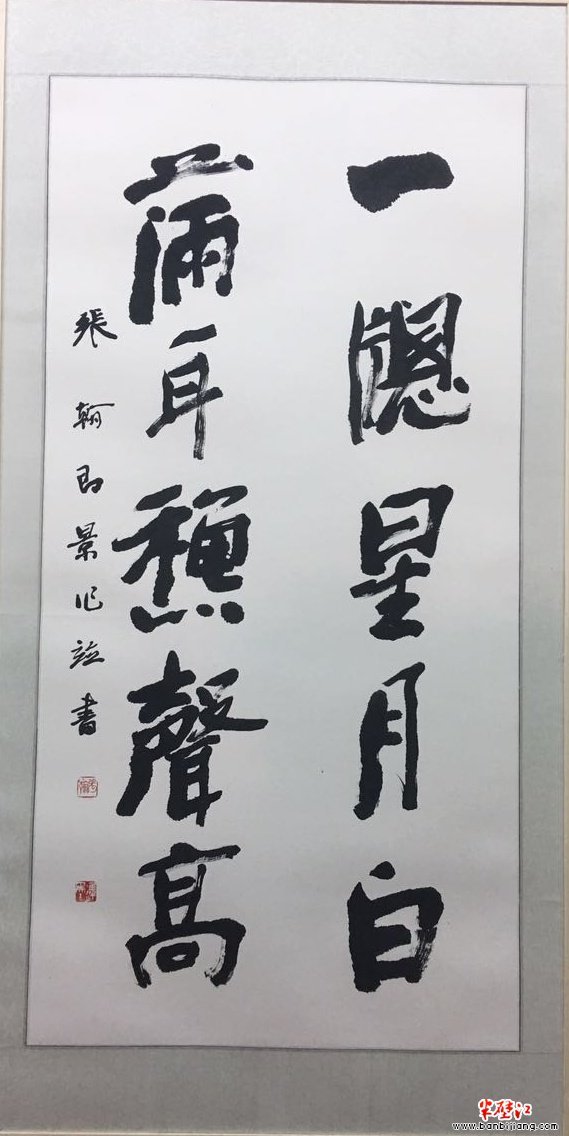 一牕星月白
滿耳穐聲高
張翰即景作並書
半壁江
www.banbijiang.com